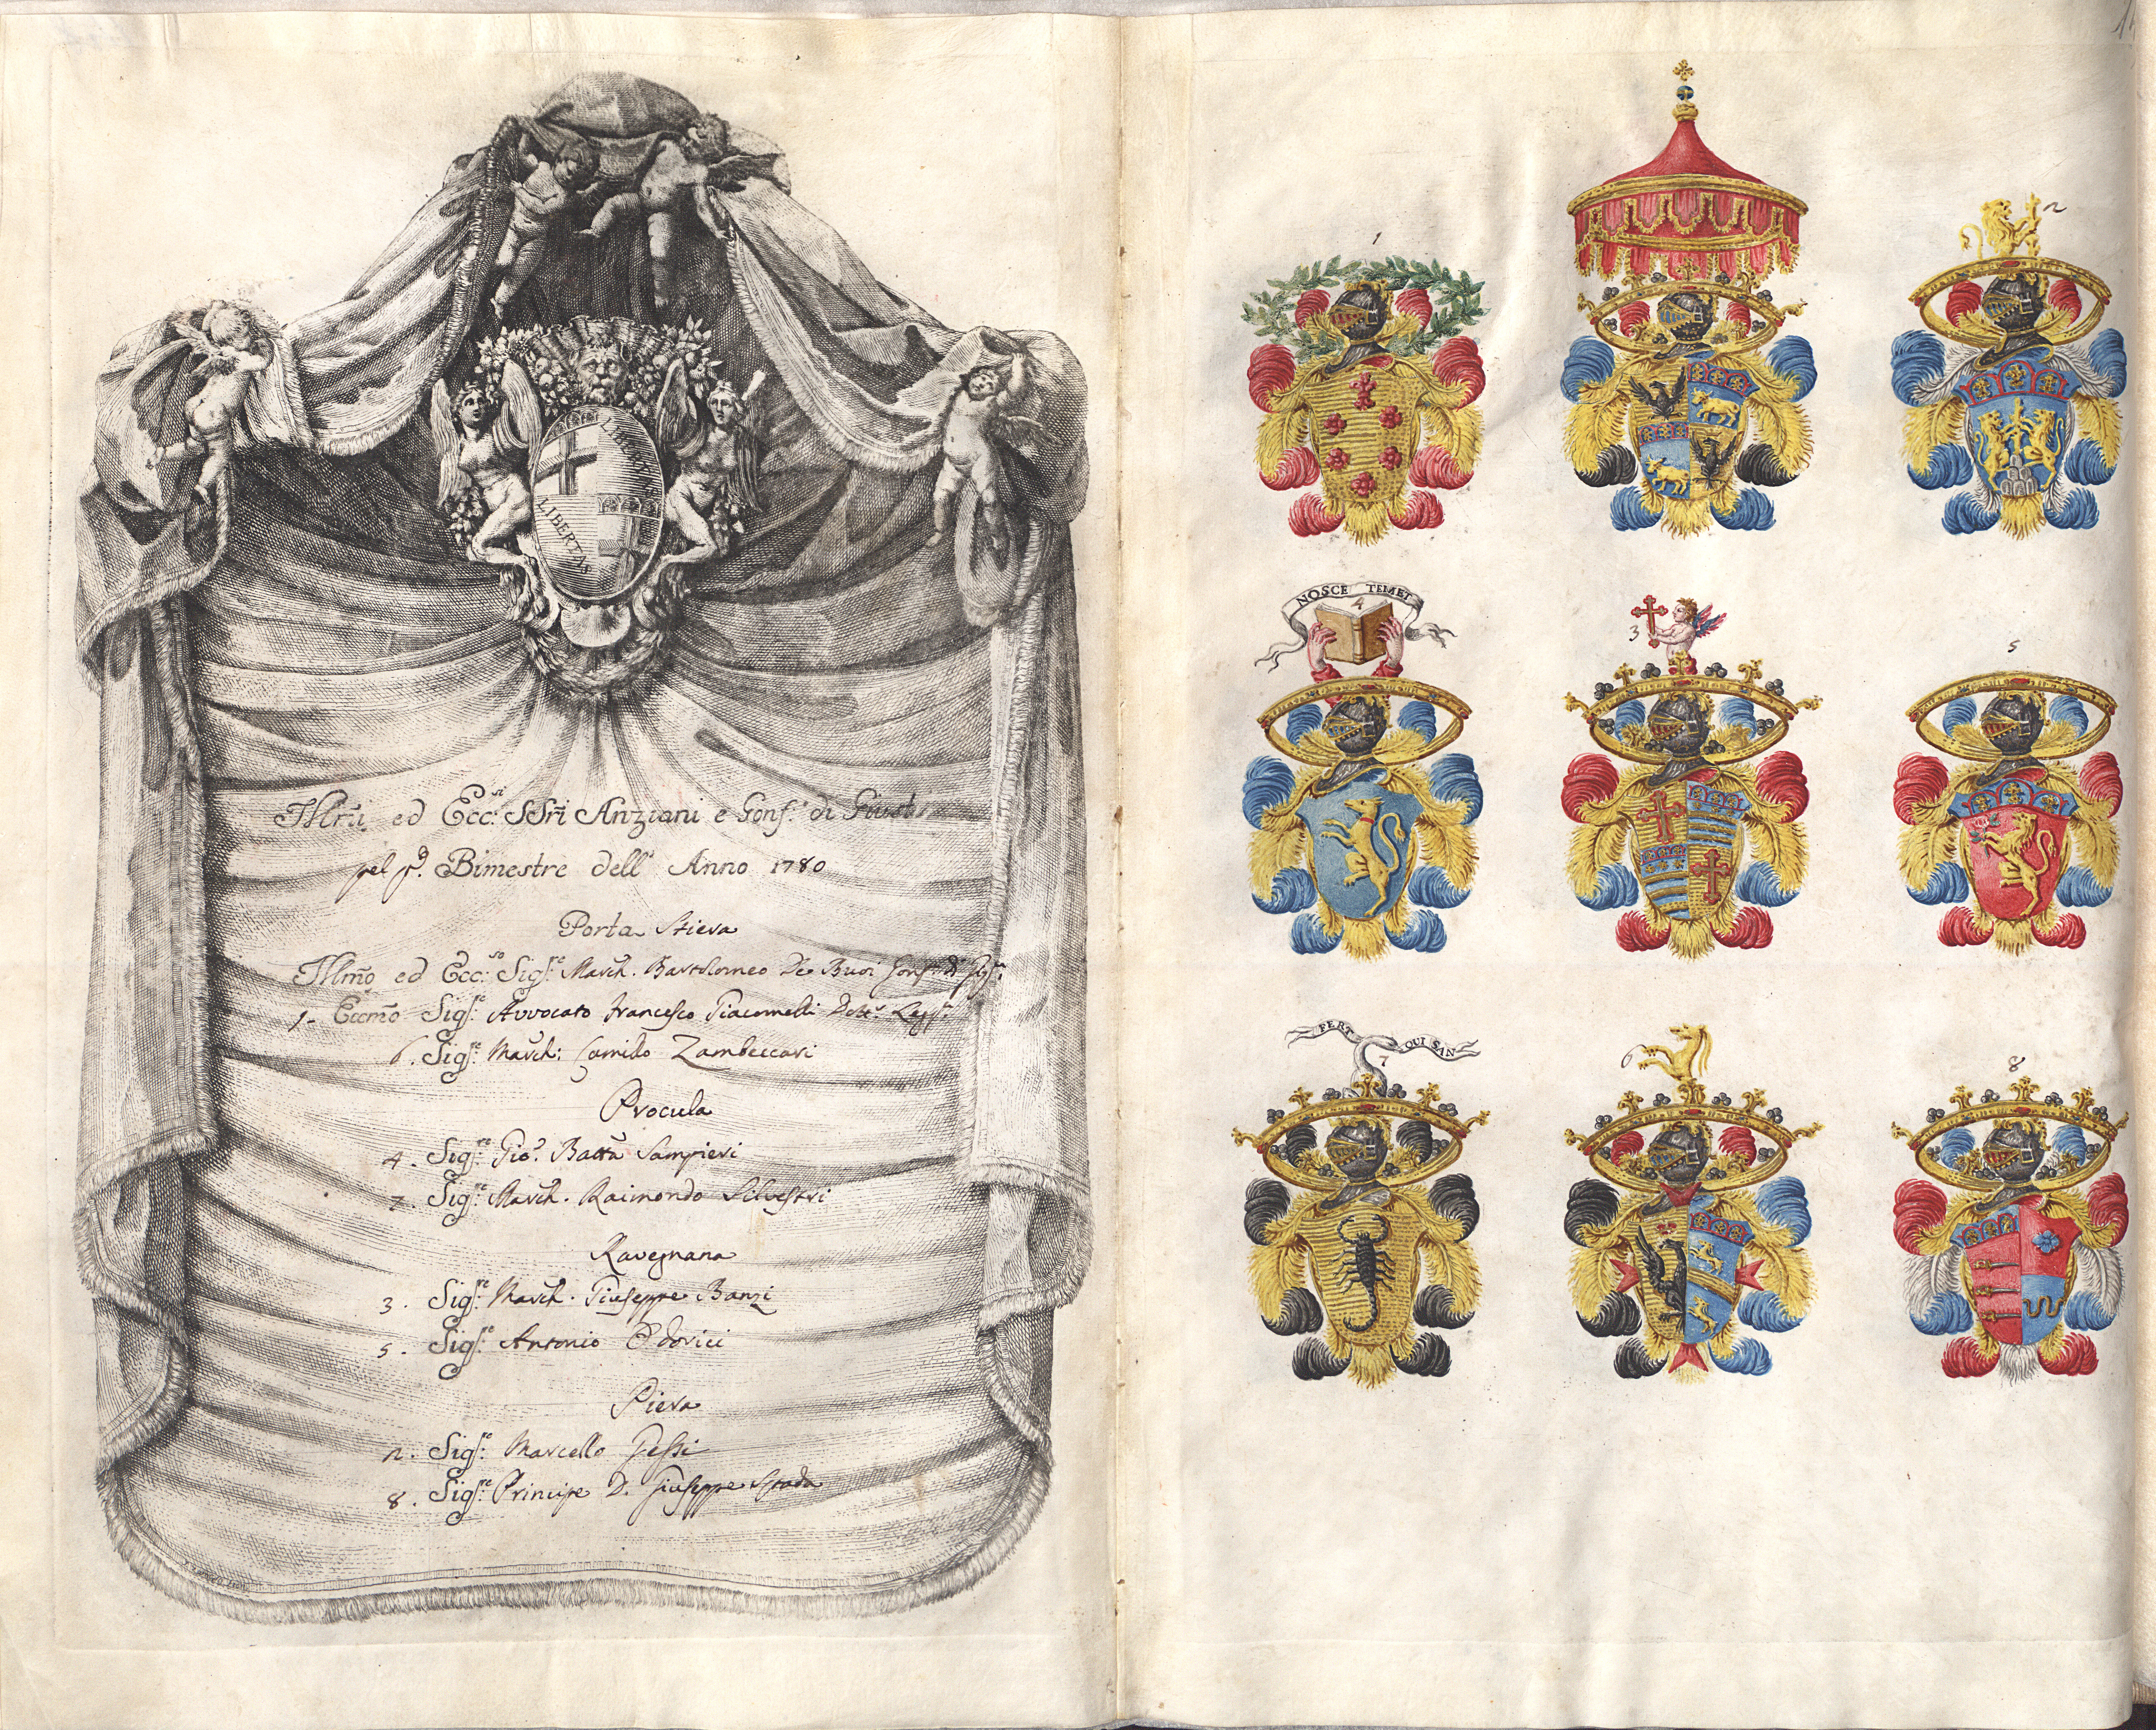 LIBERTAS
LIBERTAS
Illm̃i ed Ecc:si SSri Anziani e Gonf.i di Giust
pel p.o Bimestre dell' Anno 1780
Porta Stiera
Illmõ ed Ecc:so Sigr.e March. Bartolomeo De Buoi Gonf.
1. Eccmõ Sigr.e Avvocato Francesco Giacomelli Dott.r Legg.
6. Sigr.e March: Camillo Zambeccari
Procula
4. Sigr.e Gio. Batta Sampieri
7. Sigr.e March. Raimondo Silvestri
Ravegnana
3. Sigr.e March. Giuseppe Banzi
5. Sigr.e Antonio Odorici
Piera
2. Sigr.e Marcello Gessi
8. Sigr.e Principe D. Giuseppe Spada
1
2
NOSCE TEMET
4
3
5
FERT QUI SAN
7
6
8